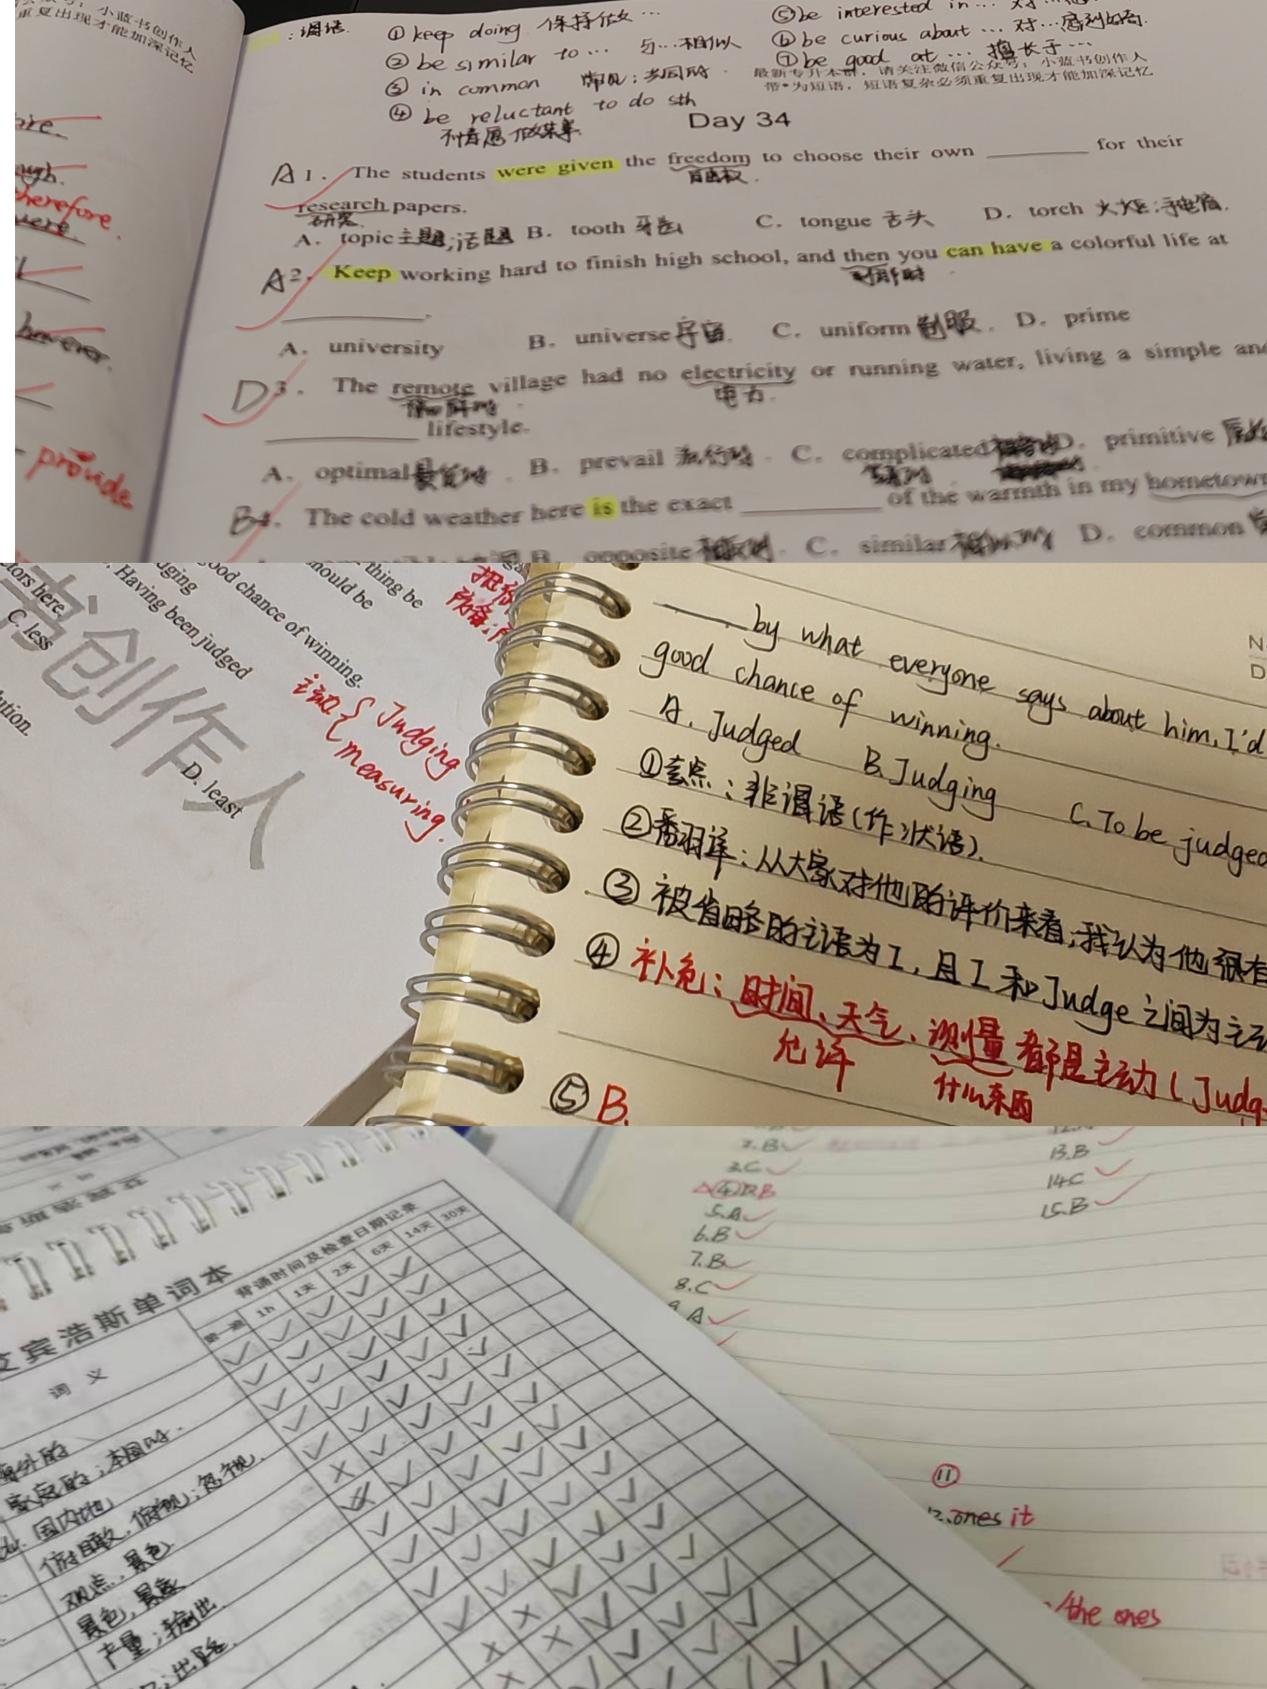 众号：小蓝书创作人
重复出现才能加深记忆
herefore.
however.
provide
：调语.
① keep doing 保持做…
② be similar to … 与…相似
③ in common 常见；共同的.
④ be reluctant to do sth
不情愿做某事.
⑤ be interested in …
⑥ be curious about … 对…感到好奇.
⑦ be good at … 擅长于…
最新专升本群，请关注微信公众号：小蓝书创作人
带*为短语，短语复杂必须重复出现才能加深记忆
Day 34
A 1. The students were given the freedom to choose their own ________ for their
自由权.
research papers.
研究
A. topic 主题;话题 B. tooth 牙齿 C. tongue 舌头 D. torch 火炬;手电筒.
A 2. Keep working hard to finish high school, and then you can have a colorful life at
____________.
A. university B. universe 宇宙. C. uniform 制服. D. prime
D 3. The remote village had no electricity or running water, living a simple and
电力.
____________ lifestyle.
A. optimal B. prevail 流行的. C. complicated D. primitive
复杂的
B 4. The cold weather here is the exact ____________ of the warmth in my hometown
B. opposite 相反的. C. similar 相似的 D. common
thing be
ood chance of winning.
should be
dging
Having been judged
tors here.
C. less
ution.
D. least
书创作人
主动 { Judging
measuring.
____ by what everyone says about him, I'd
good chance of winning.
A. Judged B. Judging C. To be judged
①考点：非谓语(作状语).
②翻译：从大家对他的评价来看，我认为他很有
③ 被省略的主语为I，且I和Judge之间为主动
④ 补充：时间、天气、测量都是主动(Judg
允许 什么东西
⑤ B.
艾宾浩斯单词本
背诵时间及检查日期记录
词 义
第一遍 1h 1天 2天 6天 14天 30天
海外的
家庭的；本国的.
国内地
俯瞰，俯视；忽视.
观点，景色
景色，景象
产量；输出
；出路.
2.B
3.C
④DB
5.A
6.B
7.B
8.C
9.A
13.B
14.C
15.B
⑪
12.ones it
/the ones